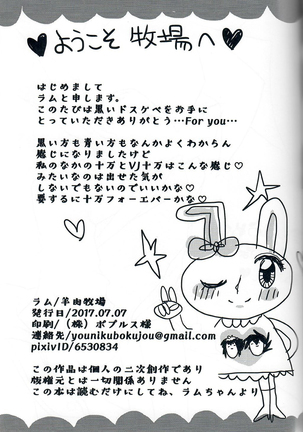 ♥ようこそ 牧場へ♥
はじめまして
ラムと申します。
このたびは黒いドスケベをお手に
とっていただきありがとう…For you…
黒い方も青い方もなんかよくわからん
感じになりましたけど
私のなかの十万とVJ十万はこんな感じ♡
みたいなのは出せた気が
しないでもないのでいいかな♡
要するに十万フォーエバーかな♡
ラム/羊肉牧場
発行日/2017.07.07
印刷/（株）ポプルス様
連絡先/younikubokujou@gmail.com
pixivID/6530834
この作品は個人の二次創作であり
版権元とは一切関係ありません
この本は読むだけにしてね、ラムちゃんより